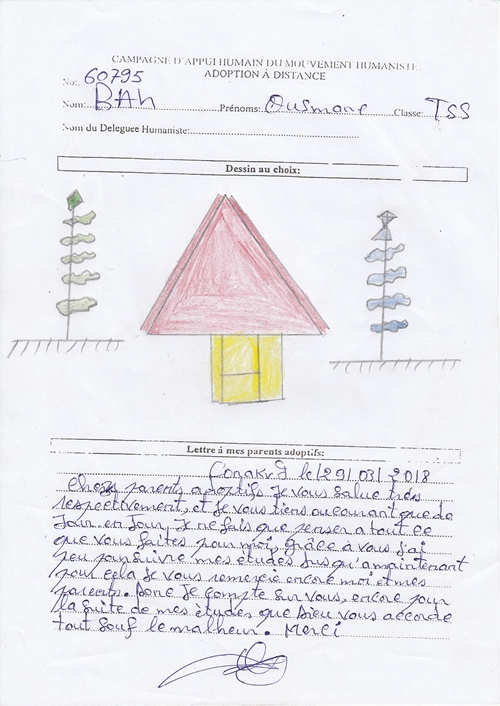 CAMPAGNE D'APPUI HUMAIN DU MOUVEMENT HUMANISTE
ADOPTION Á DISTANCE
No: 60795
Nom: BAh Prénoms: Ousmane Classe: TSS
Nom du Deleguee Humaniste:
Dessin au choix:
Lettre á mes parents adoptifs:
Conakry le 29/03/2018
parents adoptifs Je vous salue très
respectivement, et Je vous tiens au courant que de
Jour en Jour, Je ne fais que penser a tout ce
que vous faites pour moi, Grâce à vous j'ai
peu poursuivre mes études Jusqu'a maintenant
pour cela Je vous remercie encore moi et mes
parents. Donc Je compte sur vous, encore pour
la suite de mes études que Dieu vous accorde
tout Souf le malheur. Merci